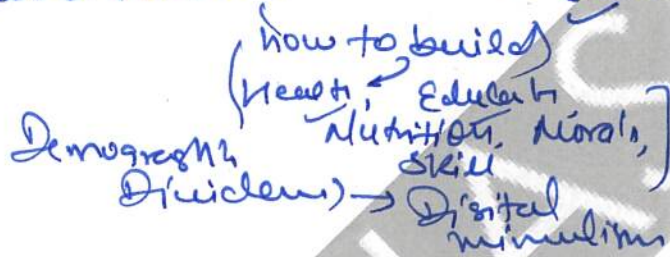 how to build
(Health, Education
Nutrition, Morals,
Skill]
Demographic
Dividend) → Digital
minimalism